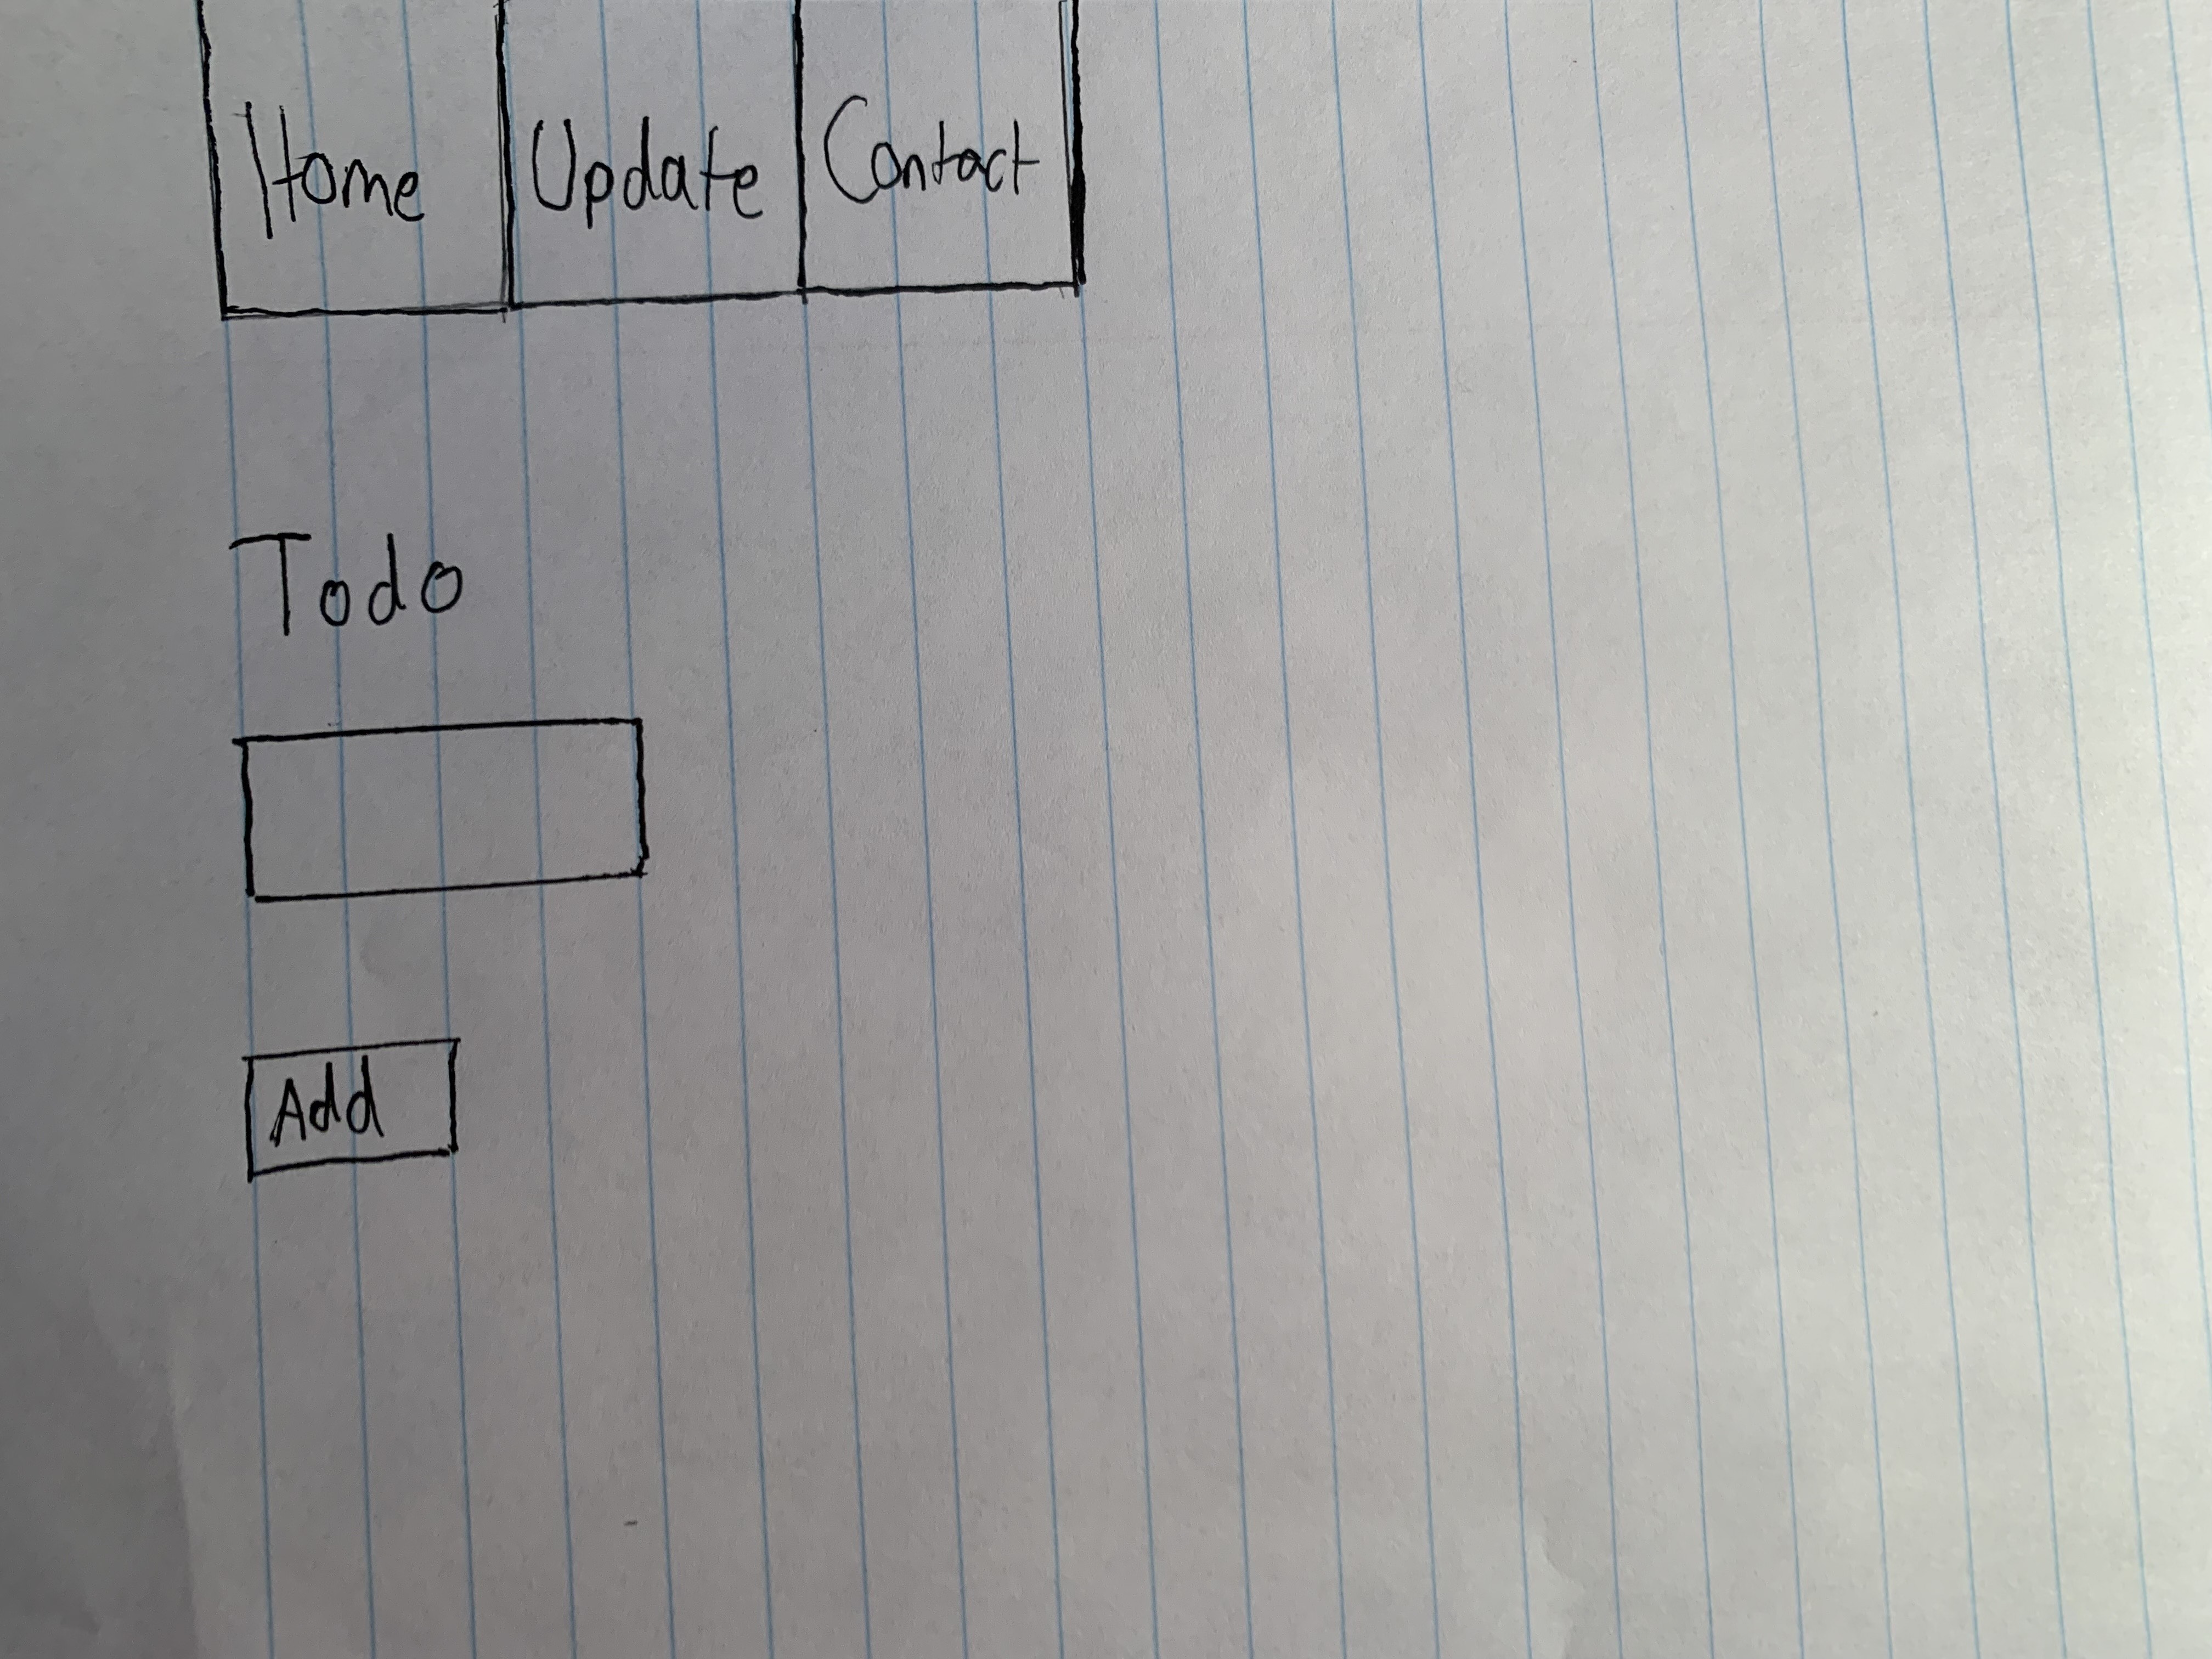 Home Update Contact
Todo
Add